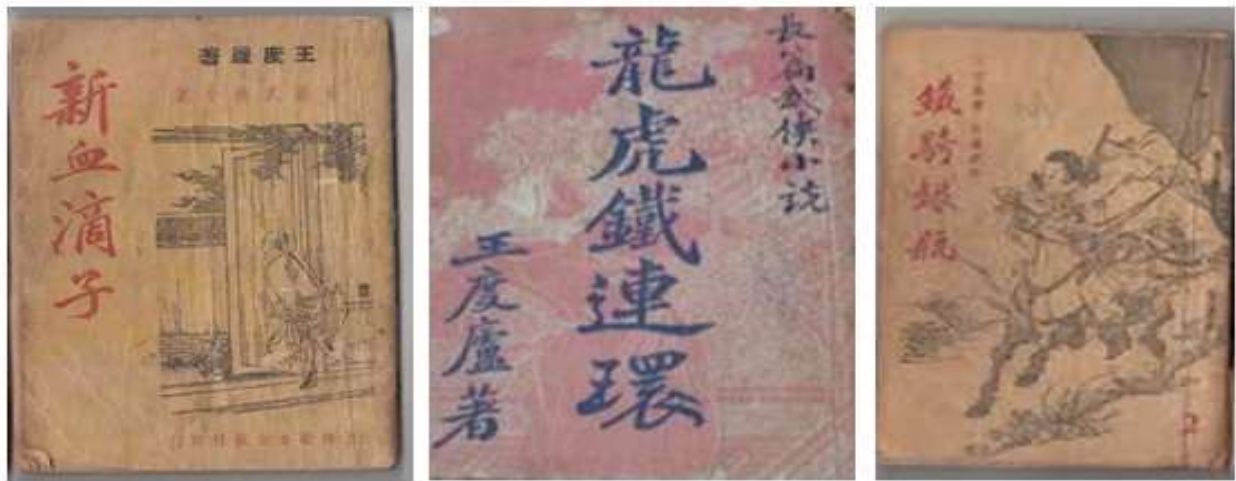 王度廬著
新血滴子
長篇武俠小说
龍虎鐵連環
王度廬著
鐵騎銀瓶
2